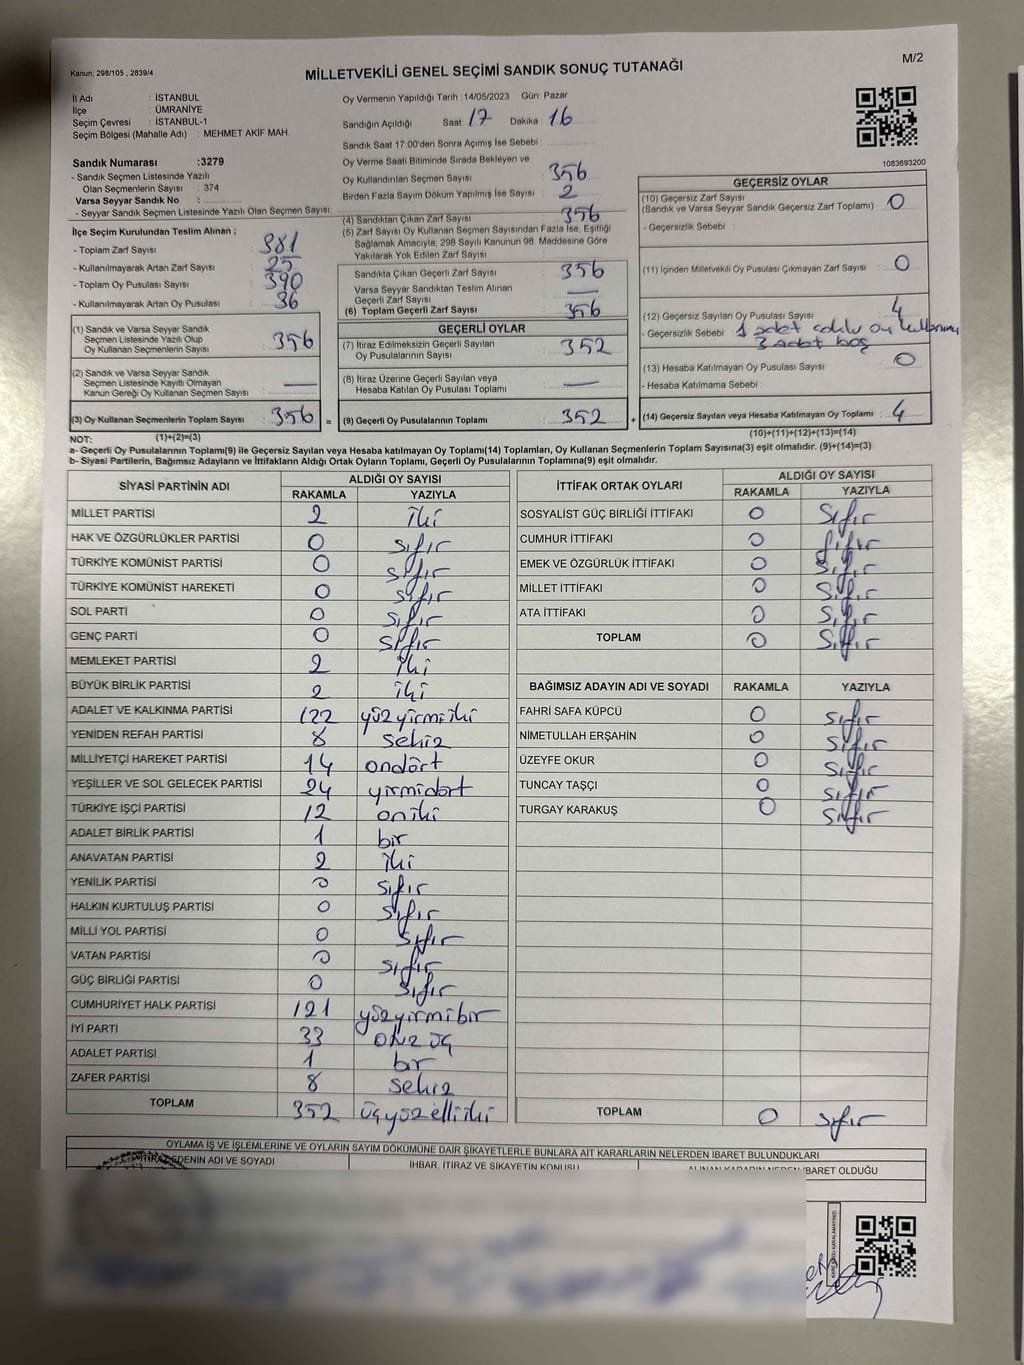 Kanun; 298/105 , 2839/4
MİLLETVEKİLİ GENEL SEÇİMİ SANDIK SONUÇ TUTANAĞI
M/2
İl Adı : İSTANBUL
İlçe : ÜMRANİYE
Seçim Çevresi : İSTANBUL-1
Seçim Bölgesi (Mahalle Adı) : MEHMET AKİF MAH.
Sandık Numarası :3279
- Sandık Seçmen Listesinde Yazılı
Olan Seçmenlerin Sayısı : 374
Varsa Seyyar Sandık No :
- Seyyar Sandık Seçmen Listesinde Yazılı Olan Seçmen Sayısı:
Oy Vermenin Yapıldığı Tarih : 14/05/2023 Gün: Pazar
Sandığın Açıldığı Saat: 17 Dakika : 16
Sandık Saat 17:00'den Sonra Açılmış İse Sebebi :
Oy Verme Saati Bitiminde Sırada Bekleyen ve
Oy Kullandırılan Seçmen Sayısı : 356
Birden Fazla Sayım Döküm Yapılmış İse Sayısı : 2
1083693200
İlçe Seçim Kurulundan Teslim Alınan ;
- Toplam Zarf Sayısı : 381
- Kullanılmayarak Artan Zarf Sayısı : 25
- Toplam Oy Pusulası Sayısı : 390
- Kullanılmayarak Artan Oy Pusulası : 36
(1) Sandık ve Varsa Seyyar Sandık
Seçmen Listesinde Yazılı Olup
Oy Kullanan Seçmenlerin Sayısı : 356
(2) Sandık ve Varsa Seyyar Sandık
Seçmen Listesinde Kayıtlı Olmayan
Kanun Gereği Oy Kullanan Seçmen Sayısı : —
(3) Oy Kullanan Seçmenlerin Toplam Sayısı : 356 =
(4) Sandıktan Çıkan Zarf Sayısı : 356
(5) Zarf Sayısı Oy Kullanan Seçmen Sayısından Fazla İse, Eşitliği
Sağlamak Amacıyla, 298 Sayılı Kanunun 98. Maddesine Göre
Yakılarak Yok Edilen Zarf Sayısı :
Sandıkta Çıkan Geçerli Zarf Sayısı : 356
Varsa Seyyar Sandıktan Teslim Alınan
Geçerli Zarf Sayısı : —
(6) Toplam Geçerli Zarf Sayısı : 356
GEÇERLİ OYLAR
(7) İtiraz Edilmeksizin Geçerli Sayılan
Oy Pusulalarının Sayısı : 352
(8) İtiraz Üzerine Geçerli Sayılan veya
Hesaba Katılan Oy Pusulası Toplamı : —
(9) Geçerli Oy Pusulalarının Toplamı : 352 +
GEÇERSİZ OYLAR
(10) Geçersiz Zarf Sayısı
(Sandık ve Varsa Seyyar Sandık Geçersiz Zarf Toplamı) : 0
- Geçersizlik Sebebi :
(11) İçinden Milletvekili Oy Pusulası Çıkmayan Zarf Sayısı : 0
(12) Geçersiz Sayılan Oy Pusulası Sayısı : 4
- Geçersizlik Sebebi : 1 adet oy kullanımı
3 adet boş
(13) Hesaba Katılmayan Oy Pusulası Sayısı : 0
- Hesaba Katılmama Sebebi :
(14) Geçersiz Sayılan veya Hesaba Katılmayan Oy Toplamı : 4
NOT: (1)+(2)=(3)
(10)+(11)+(12)+(13)=(14)
a- Geçerli Oy Pusulalarının Toplamı(9) ile Geçersiz Sayılan veya Hesaba katılmayan Oy Toplamı(14) Toplamları, Oy Kullanan Seçmenlerin Toplam Sayısına(3) eşit olmalıdır. (9)+(14)=(3)
b- Siyasi Partilerin, Bağımsız Adayların ve İttifakların Aldığı Ortak Oyların Toplamı, Geçerli Oy Pusulalarının Toplamına(9) eşit olmalıdır.
SİYASİ PARTİNİN ADI ALDIĞI OY SAYISI
RAKAMLA YAZIYLA
MİLLET PARTİSİ 2 iki
HAK VE ÖZGÜRLÜKLER PARTİSİ 0 sıfır
TÜRKİYE KOMÜNİST PARTİSİ 0 sıfır
TÜRKİYE KOMÜNİST HAREKETİ 0 sıfır
SOL PARTİ 0 sıfır
GENÇ PARTİ 0 sıfır
MEMLEKET PARTİSİ 2 iki
BÜYÜK BİRLİK PARTİSİ 2 iki
ADALET VE KALKINMA PARTİSİ 122 yüzyirmiiki
YENİDEN REFAH PARTİSİ 8 sekiz
MİLLİYETÇİ HAREKET PARTİSİ 14 ondört
YEŞİLLER VE SOL GELECEK PARTİSİ 24 yirmidört
TÜRKİYE İŞÇİ PARTİSİ 12 oniki
ADALET BİRLİK PARTİSİ 1 bir
ANAVATAN PARTİSİ 2 iki
YENİLİK PARTİSİ 0 sıfır
HALKIN KURTULUŞ PARTİSİ 0 sıfır
MİLLİ YOL PARTİSİ 0 sıfır
VATAN PARTİSİ 0 sıfır
GÜÇ BİRLİĞİ PARTİSİ 0 sıfır
CUMHURİYET HALK PARTİSİ 121 yüzyirmibir
İYİ PARTİ 33 otuz üç
ADALET PARTİSİ 1 bir
ZAFER PARTİSİ 8 sekiz
TOPLAM 352 üçyüzelliiki
İTTİFAK ORTAK OYLARI ALDIĞI OY SAYISI
RAKAMLA YAZIYLA
SOSYALİST GÜÇ BİRLİĞİ İTTİFAKI 0 sıfır
CUMHUR İTTİFAKI 0 sıfır
EMEK VE ÖZGÜRLÜK İTTİFAKI 0 sıfır
MİLLET İTTİFAKI 0 sıfır
ATA İTTİFAKI 0 sıfır
TOPLAM 0 sıfır
BAĞIMSIZ ADAYIN ADI VE SOYADI RAKAMLA YAZIYLA
FAHRİ SAFA KÜPCÜ 0 sıfır
NİMETULLAH ERŞAHİN 0 sıfır
ÜZEYFE OKUR 0 sıfır
TUNCAY TAŞÇI 0 sıfır
TURGAY KARAKUŞ 0 sıfır
TOPLAM 0 sıfır
OYLAMA İŞ VE İŞLEMLERİNE VE OYLARIN SAYIM DÖKÜMÜNE DAİR ŞİKAYETLERLE BUNLARA AİT KARARLARIN NELERDEN İBARET BULUNDUKLARI
İTİRAZ EDENİN ADI VE SOYADI
İHBAR, İTİRAZ VE ŞİKAYETİN KONUSU
ALINAN KARARIN NEDEN İBARET OLDUĞU